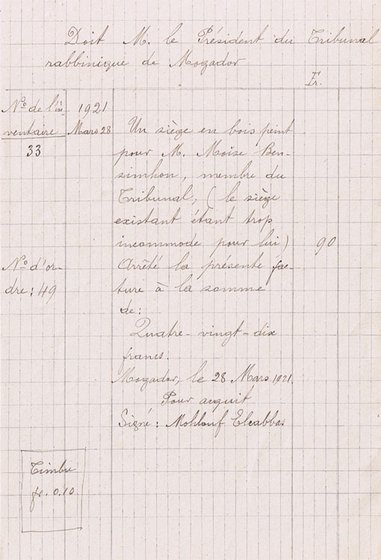 Doit M. le Président du Tribunal
rabbinique de Mogador
Fr.
No de l'in
ventaire
33
1921
Mars 28
Un siège en bois peint
pour M. Moïse Ben-
simhon, membre du
Tribunal, (le siège
existant étant trop
incommode pour lui) 90
No d'or-
dre: 49
Arrêté la présente fac-
ture à la somme
de:
Quatre-vingt-dix
francs.
Mogador, le 28 Mars 1921.
Pour acquit
Signé: Mohlouf Elcabbas
Timbre
fr. 0.10